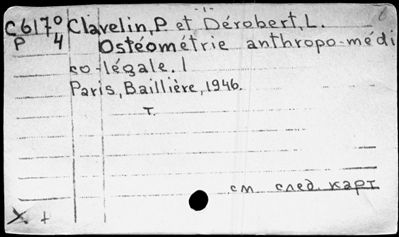 C617⁰ Clavelin, P et Dérobert, L.
P 4 Ostéométrie anthropo-médi
co-légale. I
Paris, Baillière, 1946.
т.
см след. карт
X +